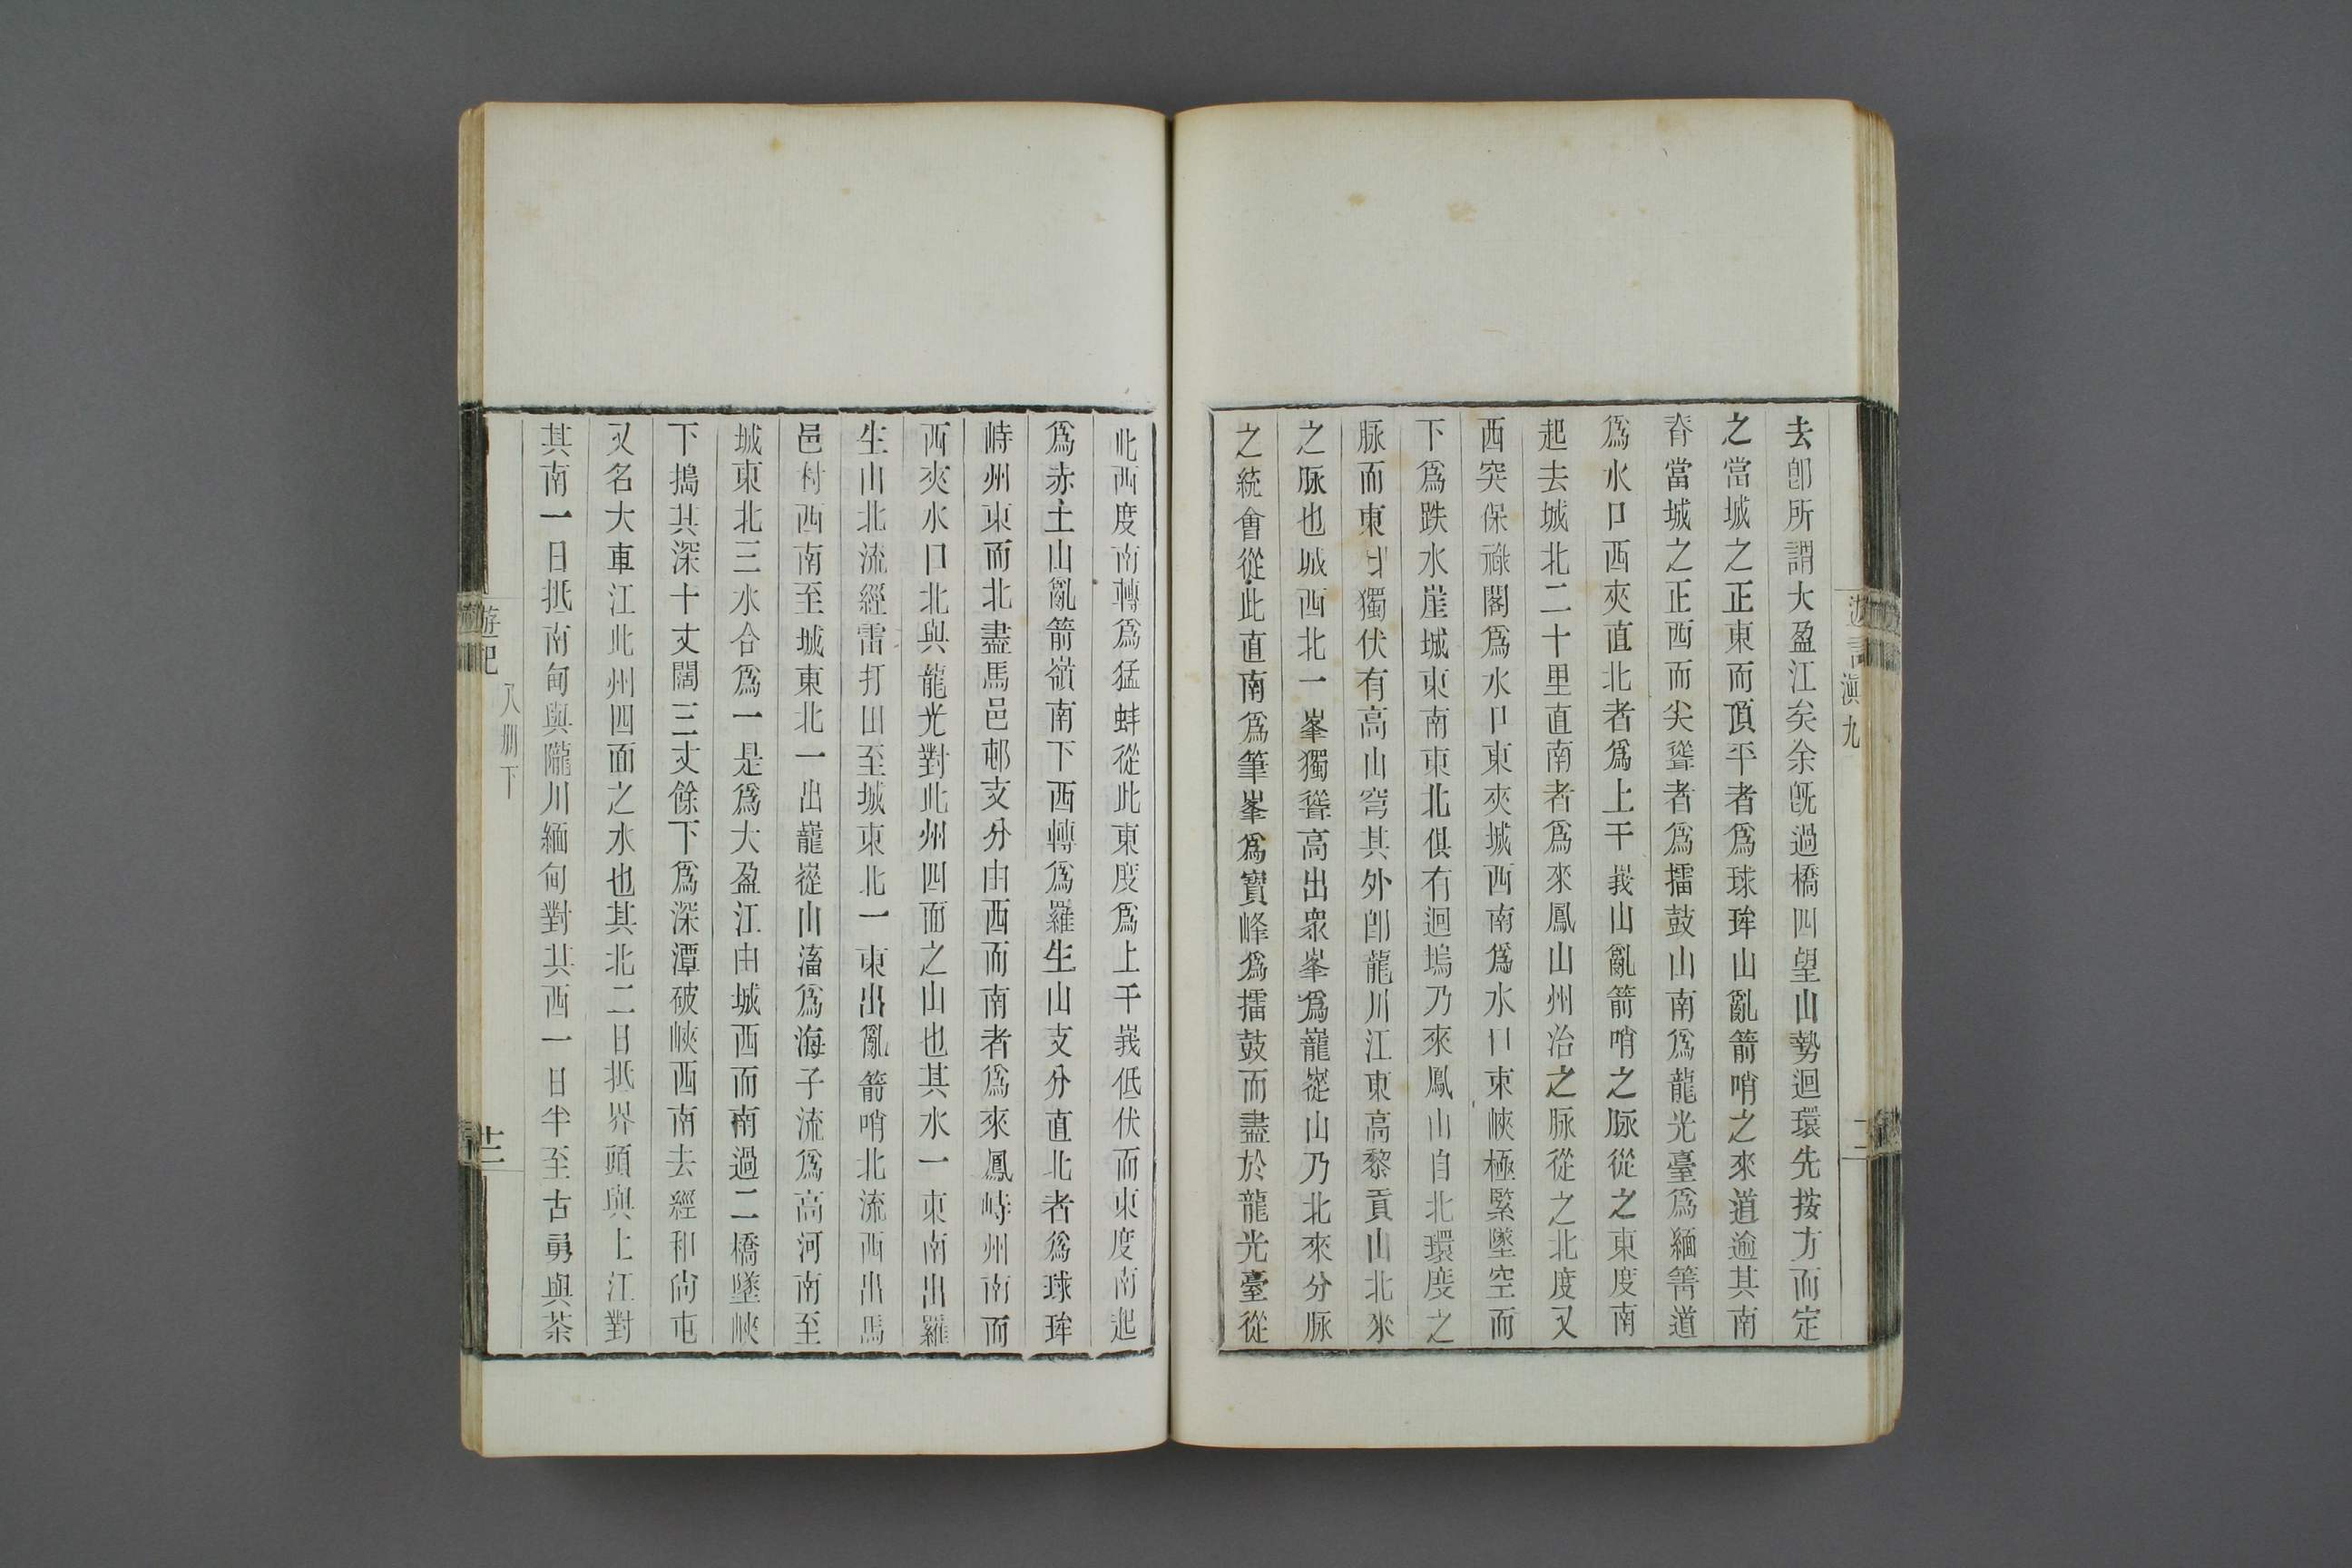 去卽所謂大盈江矣余旣過橋四望山勢迴環先按方而定
之當城之正東而頂平者爲球𤥨山亂箭哨之來道逾其南
脊當城之正西而尖聳者爲擂鼓山南爲龍光臺爲緬箐道
爲水口西夾直北者爲上干峩山亂箭哨之脉從之東度南
起去城北二十里直南者爲來鳳山州治之脉從之北度又
西突保祿閣爲水口東夾城西南爲水口束峽極緊墜空而
下爲跌水崖城東南東北俱有迴塢乃來鳳山自北環度之
脉而東𠀌獨伏有高山穹其外卽龍川江東高黎貢山北來
之脉也城西北一峯獨聳高出衆峯爲巃嵸山乃北來分脉
之統會從此直南爲筆峯爲寶峰爲擂鼓而盡於龍光臺從
此西度南轉爲猛蚌從此東度爲上干峩低伏而東度南起
爲赤土山亂箭嶺南下西轉爲羅生山支分直北者爲球𤥨
峙州東而北盡馬邑邨支分由西而南者爲來鳳峙州南而
西夾水口北與龍光對此州四面之山也其水一東南出羅
生山北流經雷打田至城東北一東出亂箭哨北流西出馬
邑村西南至城東北一出巃嵸山瀦爲海子流爲高河南至
城東北三水合爲一是爲大盈江由城西而南過二橋墜峽
下搗其深十丈闊三丈餘下爲深潭破峽西南去經和尙屯
又名大車江此州四面之水也其北二日抵界頭與上江對
其南一日抵南甸與隴川緬甸對其西一日半至古勇與茶
遊記 八册下